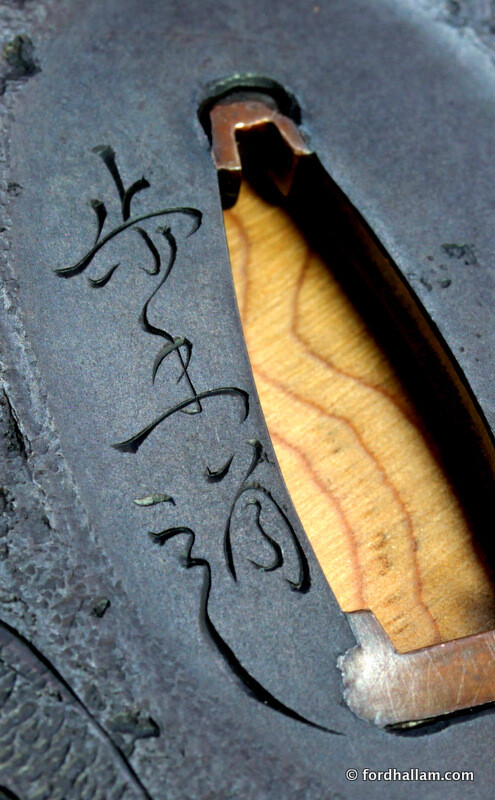 歩 道
© fordhallam.com